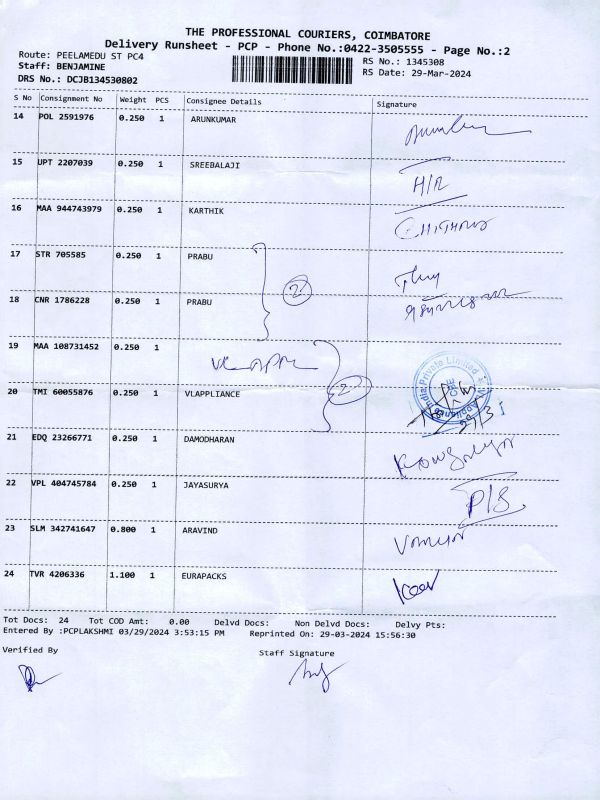 THE PROFESSIONAL COURIERS, COIMBATORE
Delivery Runsheet - PCP - Phone No.:0422-3505555 - Page No.:2
Route: PEELAMEDU ST PC4
RS No.: 1345308
Staff: BENJAMINE
RS Date: 29-Mar-2024
DRS No.: DCJB134530802
S No Consignment No Weight PCS Consignee Details Signature
14 POL 2591976 0.250 1 ARUNKUMAR
15 UPT 2207039 0.250 1 SREEBALAJI H/R
16 MAA 944743979 0.250 1 KARTHIK
17 STR 705585 0.250 1 PRABU
2
18 CNR 1786228 0.250 1 PRABU
19 MAA 108731452 0.250 1
20 TMI 60055876 0.250 1 VLAPPLIANCE 2
21 EDQ 23266771 0.250 1 DAMODHARAN
22 VPL 404745784 0.250 1 JAYASURYA P/S
23 SLM 342741647 0.800 1 ARAVIND
24 TVR 4206336 1.100 1 EURAPACKS
Tot Docs: 24 Tot COD Amt: 0.00 Delvd Docs: Non Delvd Docs: Delvy Pts:
Entered By :PCPLAKSHMI 03/29/2024 3:53:15 PM Reprinted On: 29-03-2024 15:56:30
Verified By Staff Signature